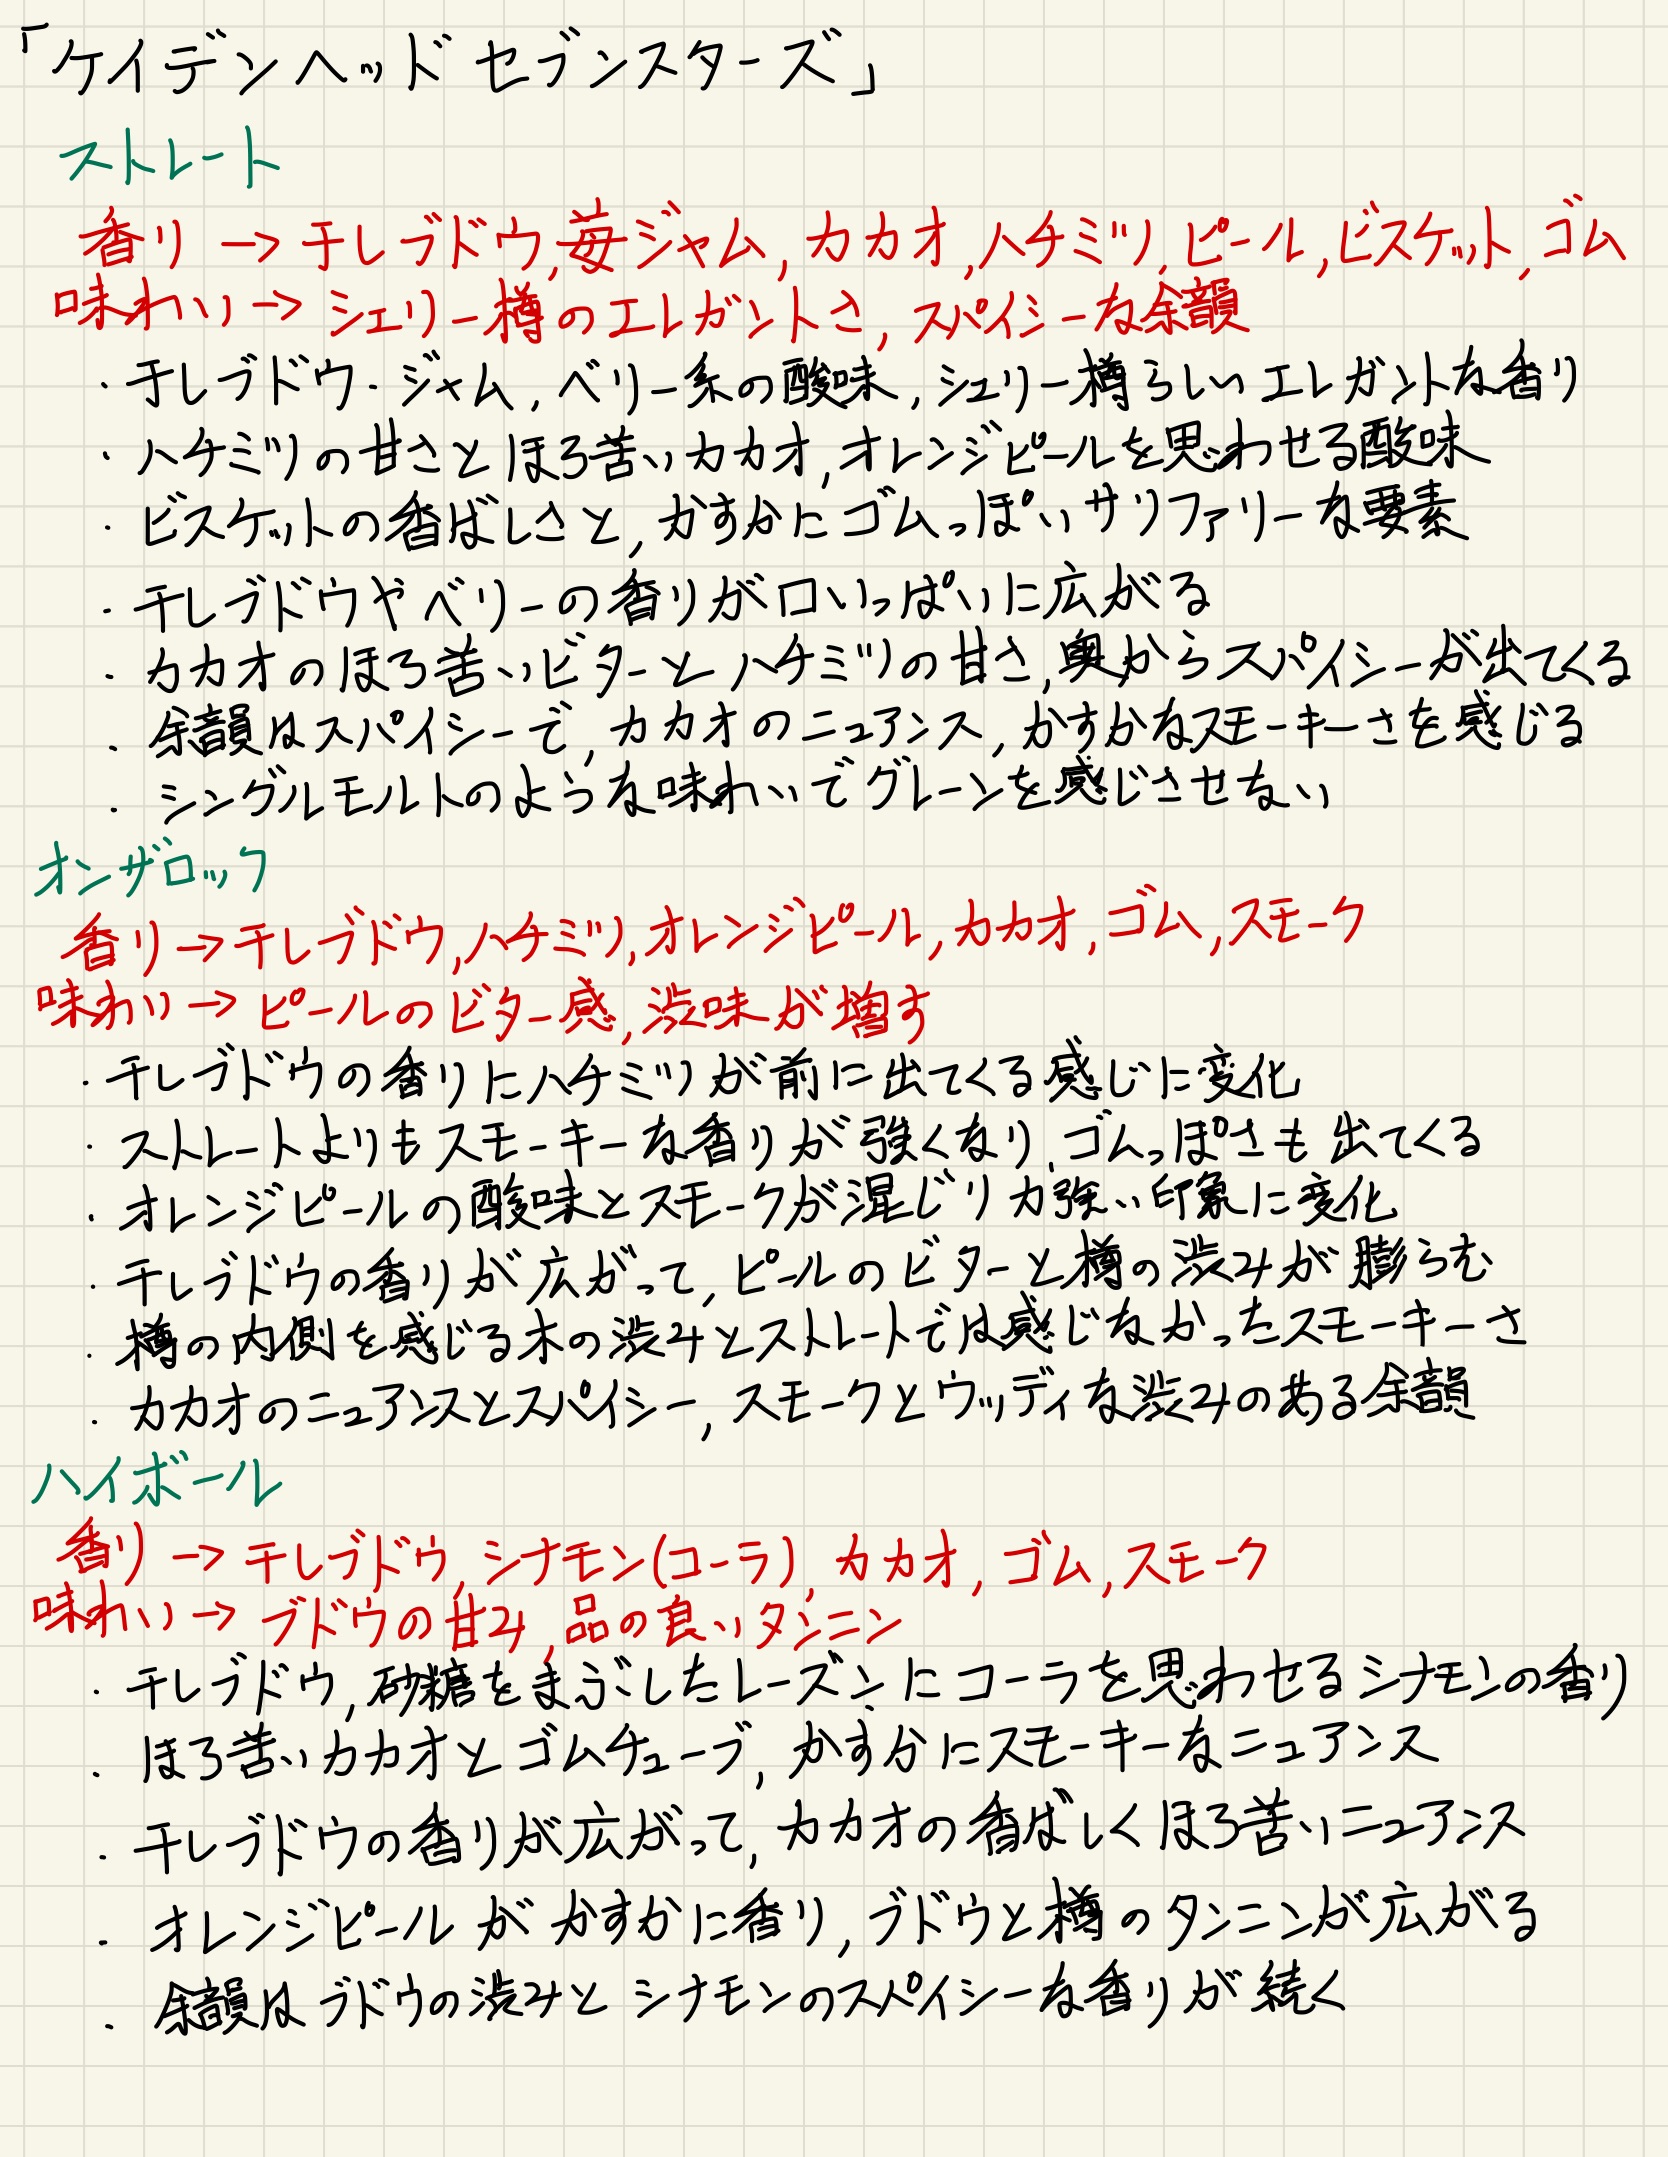 「ケイデンヘッド セブンスターズ」
ストレート
香り → 干しブドウ, 苺ジャム, カカオ, ハチミツ, ピール, ビスケット, ゴム
味わい → シェリー樽のエレガントさ, スパイシーな余韻
・干しブドウ・ジャム, ベリー系の酸味, シェリー樽らしいエレガントな香り
・ハチミツの甘さとほろ苦いカカオ, オレンジピールを思わせる酸味
・ビスケットの香ばしさと, かすかにゴムっぽいサリファリーな要素
・干しブドウやベリーの香りが口いっぱいに広がる
・カカオのほろ苦いビターとハチミツの甘さ, 奥からスパイシーが出てくる
・余韻はスパイシーで, カカオのニュアンス, かすかなスモーキーさを感じる
・シングルモルトのような味わいでグレーンを感じさせない
オンザロック
香り → 干しブドウ, ハチミツ, オレンジピール, カカオ, ゴム, スモーク
味わい → ピールのビター感, 渋味が増す
・干しブドウの香りにハチミツが前に出てくる感じに変化
・ストレートよりもスモーキーな香りが強くなり, ゴムっぽさも出てくる
・オレンジピールの酸味とスモークが混じり力強い印象に変化
・干しブドウの香りが広がって, ピールのビターと樽の渋みが膨らむ
・樽の内側を感じる木の渋みとストレートでは感じなかったスモーキーさ
・カカオのニュアンスとスパイシー, スモークとウッディな渋みのある余韻
ハイボール
香り → 干しブドウ, シナモン(コーラ), カカオ, ゴム, スモーク
味わい → ブドウの甘み, 品の良いタンニン
・干しブドウ, 砂糖をまぶしたレーズンにコーラを思わせるシナモンの香り
・ほろ苦いカカオとゴムチューブ, かすかにスモーキーなニュアンス
・干しブドウの香りが広がって, カカオの香ばしくほろ苦いニュアンス
・オレンジピールがかすかに香り, ブドウと樽のタンニンが広がる
・余韻はブドウの渋みとシナモンのスパイシーな香りが続く